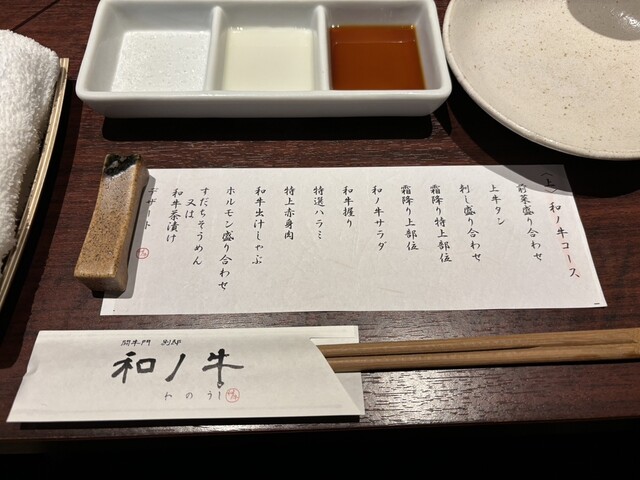 （上）和ノ牛コース
前菜盛り合わせ
上牛タン
刺し盛り合わせ
霜降り特上部位
霜降り上部位
和ノ牛サラダ
和牛握り
特選ハラミ
特上赤身肉
和牛出汁しゃぶ
ホルモン盛り合わせ
すだちそうめん
又は
和牛茶漬け
デザート
闘牛門 別邸
和ノ牛
わのうし